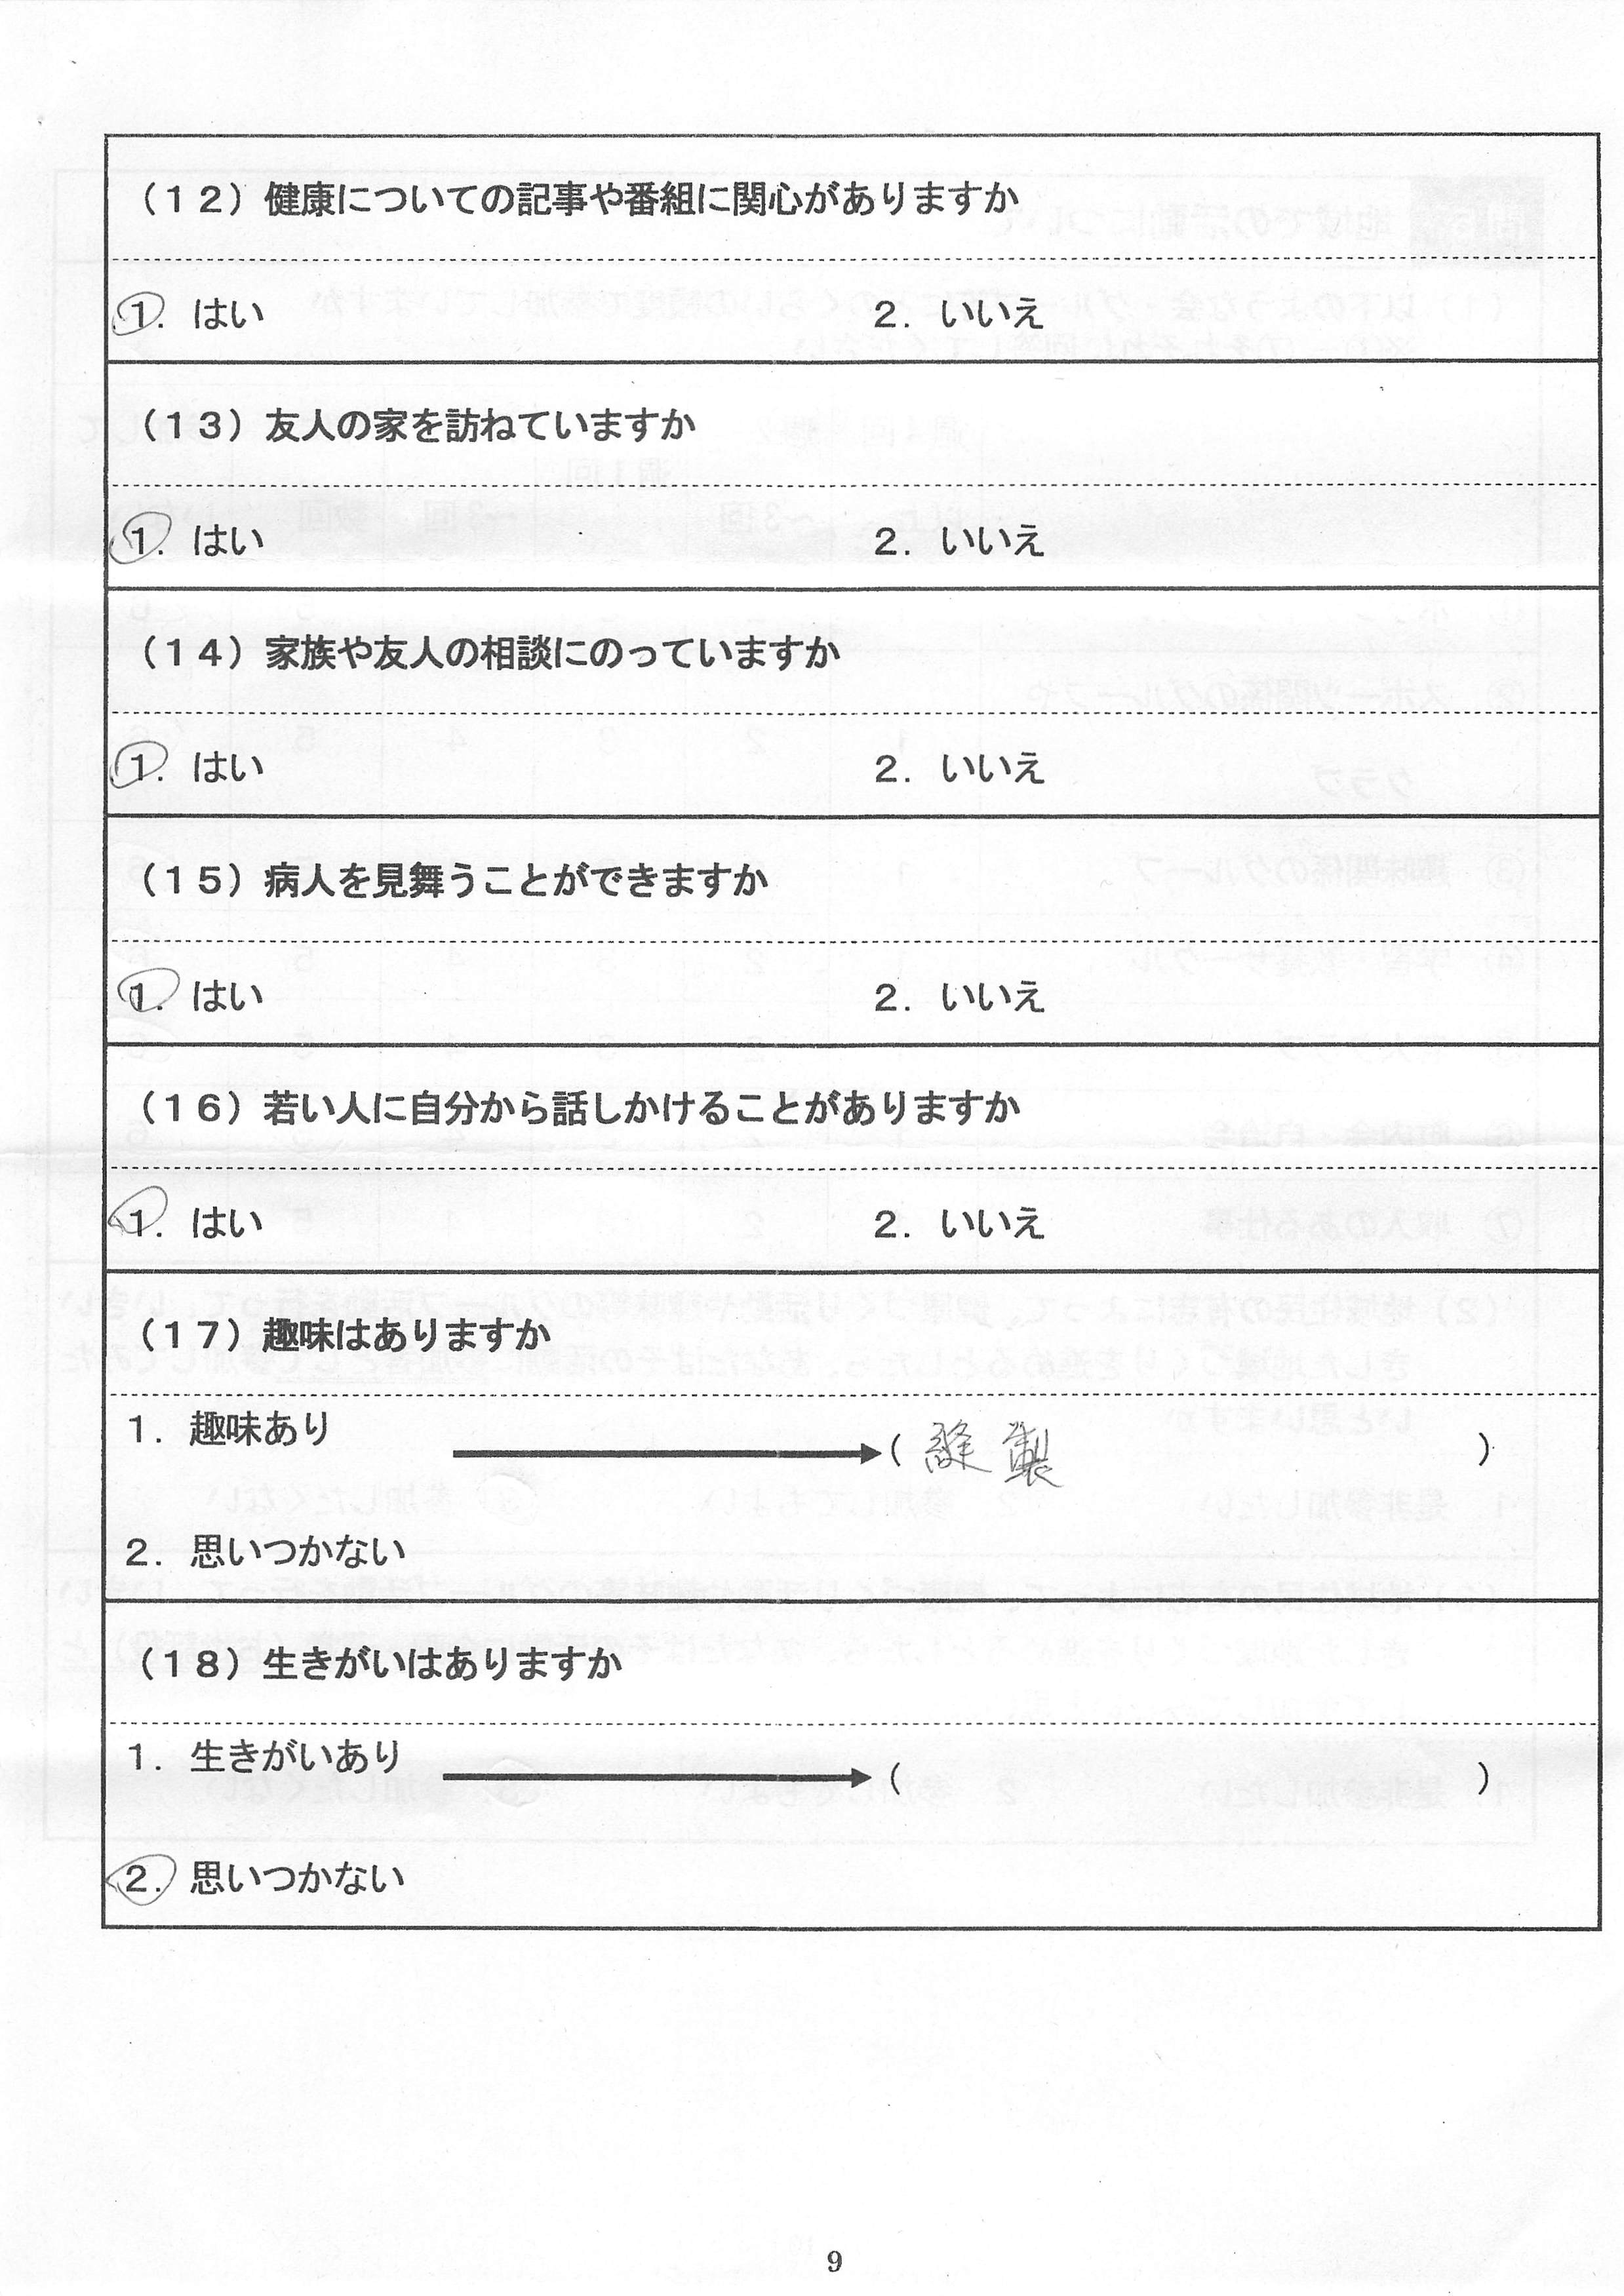 （１２）健康についての記事や番組に関心がありますか
１．はい　２．いいえ
（１３）友人の家を訪ねていますか
１．はい　２．いいえ
（１４）家族や友人の相談にのっていますか
１．はい　２．いいえ
（１５）病人を見舞うことができますか
１．はい　２．いいえ
（１６）若い人に自分から話しかけることがありますか
１．はい　２．いいえ
（１７）趣味はありますか
１．趣味あり
（縫製）
２．思いつかない
（１８）生きがいはありますか
１．生きがいあり
（　）
２．思いつかない
9